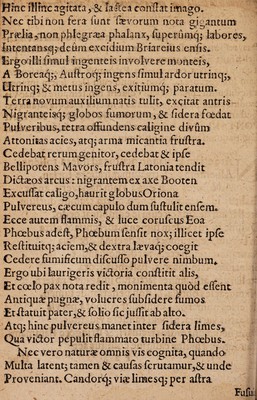 Hinc illinc agitata, & lactea constat imago.
Nec tibi non fera sunt sævorum nota gigantum
Prælia, non phlegræa phalanx, superûmq; labores,
Intentansq; deûm excidium Briareius ensis.
Ergo illi simul ingenteis involvere monteis,
A Boreâq;, Austroq; ingens simul ardor utrinq;,
Utrinq; & metus ingens, exitiumq; paratum.
Terra novum auxilium natis tulit, excitat antris
Nigranteisq; globos fumorum, & sidera fœdat
Pulveribus, tetra offundens caligine divûm
Attonitas acies, atq; arma micantia frustra.
Cedebat rerum genitor, cedebat & ipse
Bellipotens Mavors, frustra Latonia tendit
Dictæos arcus: nigrantem ex axe Booten
Excussat caligo, haurit globus Oriona
Pulvereus, cæcum capulo dum sustulit ensem.
Ecce autem flammis, & luce coruscus Eoa
Phœbus adest, Phœbum sensit nox; illicet ipse
Restituitq; aciem, & dextra lævaq; coegit
Cedere fumificum discusso pulvere nimbum.
Ergo ubi laurigeris victoria constitit alis,
Et cœlo pax nota redit, monimenta quòd essent
Antiquæ pugnæ, volucres subsidere fumos
Et statuit pater, & solio sic jussit ab alto.
Atq; hinc pulvereus manet inter sidera limes,
Qua victor pepulit flammato turbine Phœbus.
Nec vero naturæ omnis vis cognita, quando
Multa latent; tamen & causas scrutamur, & unde
Proveniant. Candorq; viæ limesq; per astra
Fusus